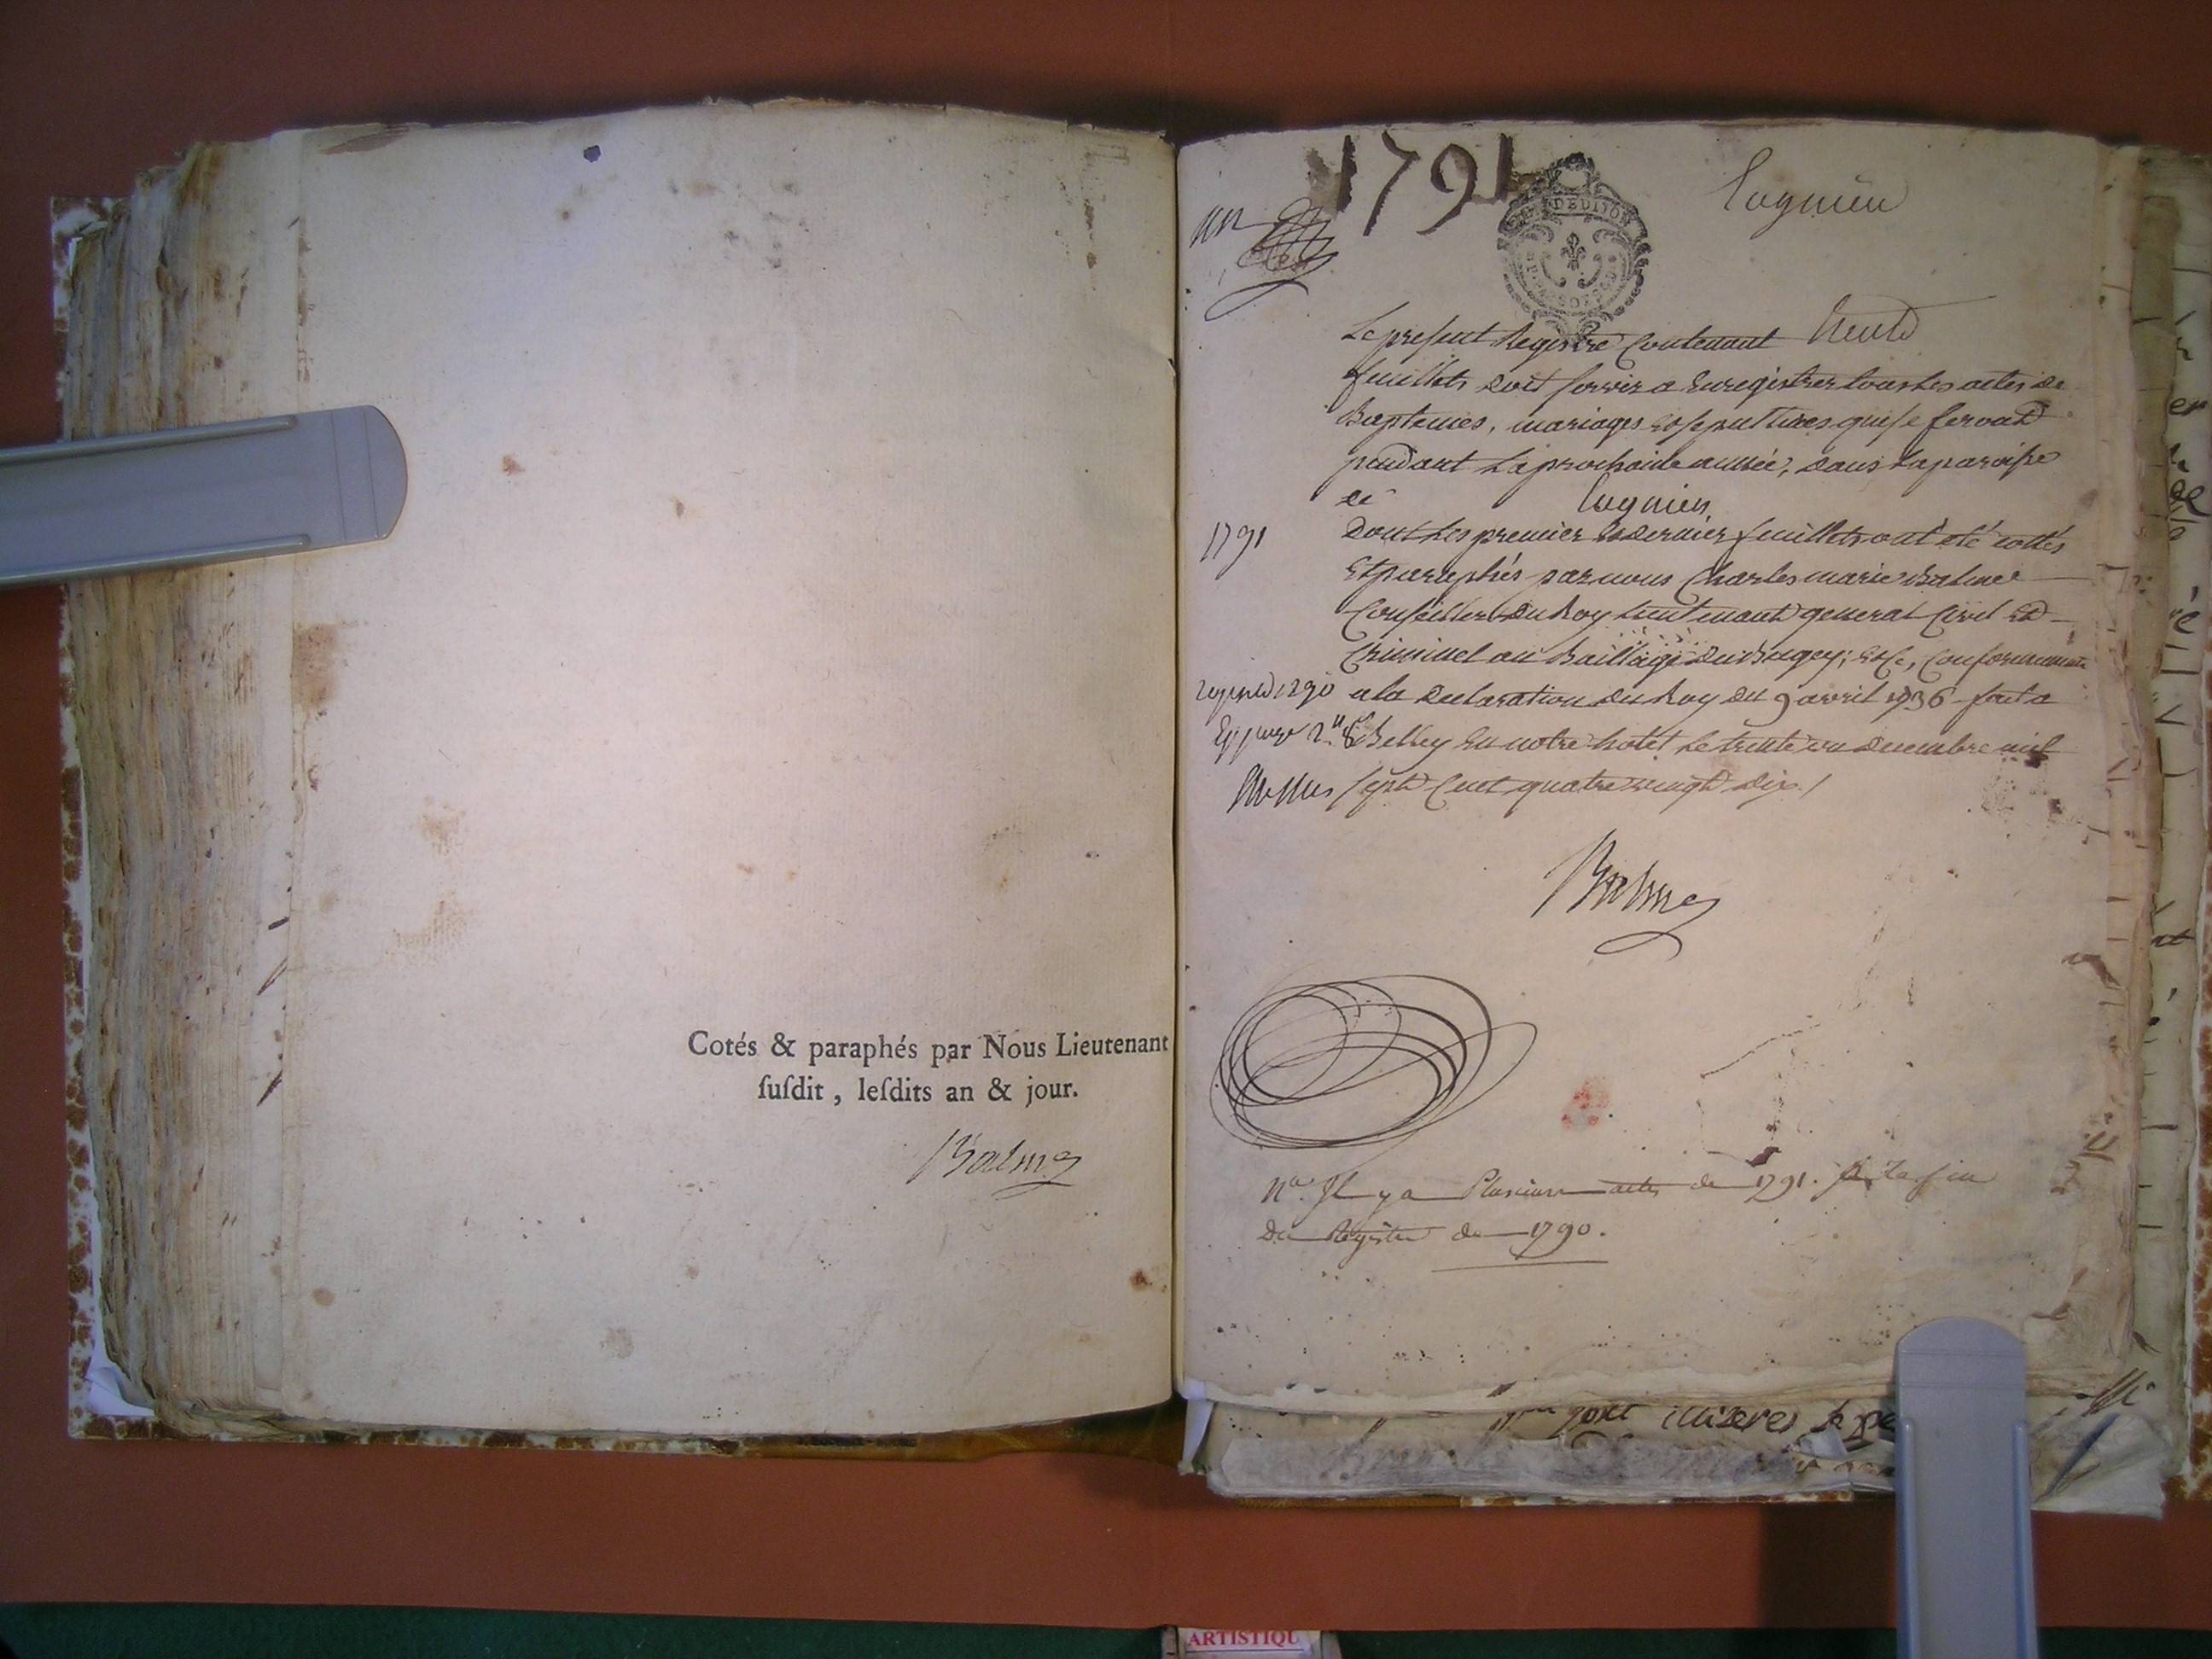 Cotés & paraphés par Nous Lieutenant
ſuſdit, leſdits an & jour.
Balme
1791
DE DIJON
Lagnieu
un
Le present Registre Contenant trente
feuillets doit servir a Enregistrer tous les actes de
Baptemes, mariages et sepultures qui se feront
pendant La prochaine année, dans La paroisse
de Lagnieu
1791
Dont Les premier et dernier feuillets ont été cottés
Et paraphés par nous Charles marie Balme
Conseiller du Roy Lieutenant general Civil Et
Criminel au Bailliage du Bugey; Etc, Conformement
a la Declaration du Roy du 9 avril 1736 fait a
Belley En notre hotel Le trente un Decembre mil
sept Cent quatre vingt dix /
Balme
Na. Il y a Plusieurs actes de 1791. a La fin
Du Registre de 1790.
ARTISTIQU